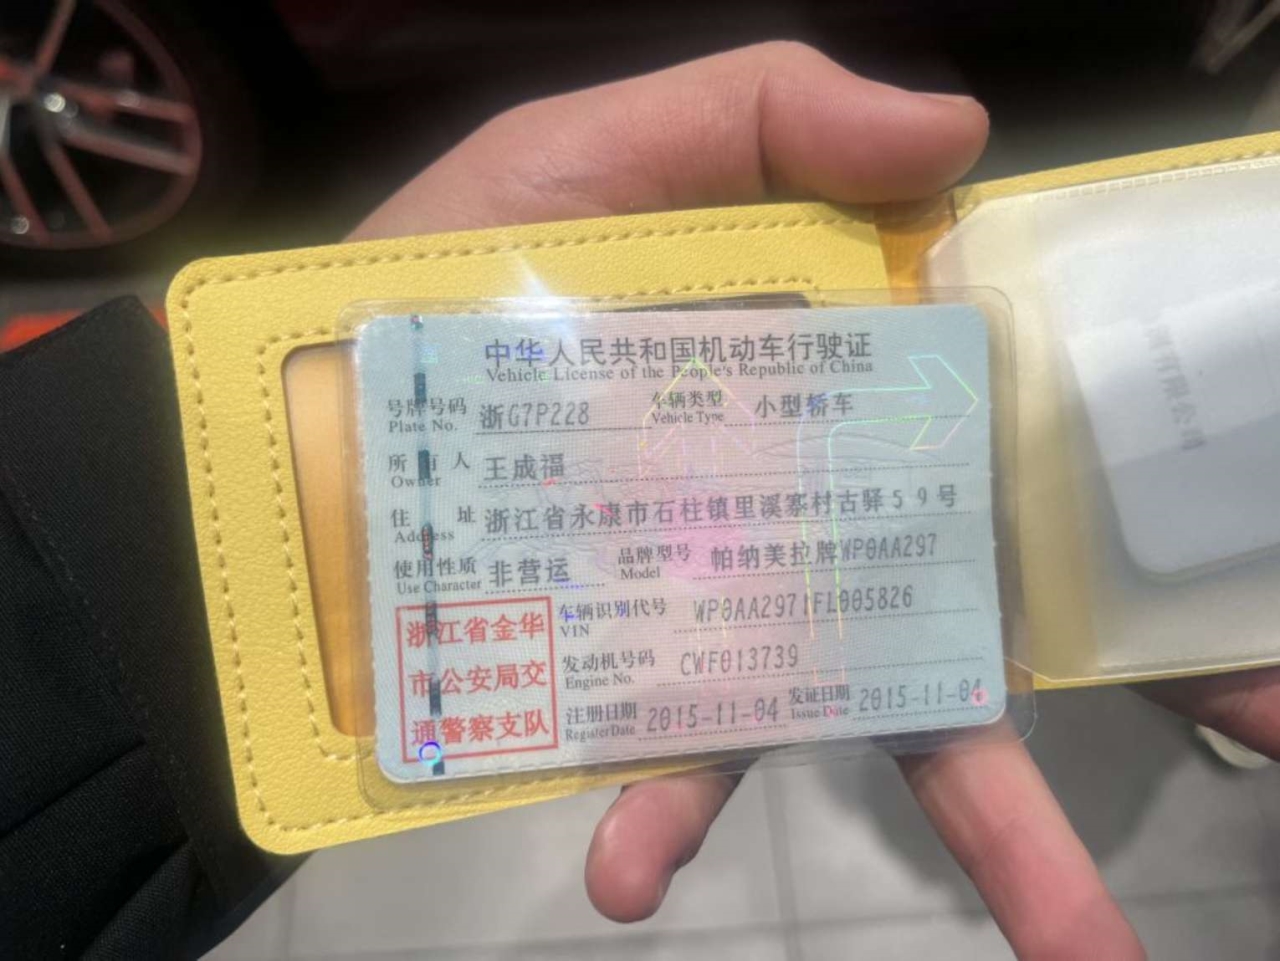 中华人民共和国机动车行驶证
Vehicle License of the People's Republic of China
号牌号码 浙G7P228 车辆类型 小型轿车
Plate No. Vehicle Type
所有人 王成福
Owner
住址 浙江省永康市石柱镇里溪寨村古驿59号
Address
使用性质 非营运 品牌型号 帕纳美拉牌WP0AA297
Use Character Model
浙江省金华
市公安局交
通警察支队
车辆识别代号 WP0AA2971FL005826
VIN
发动机号码 CWF013739
Engine No.
注册日期 2015-11-04 发证日期 2015-11-04
Register Date Issue Date
有限公司